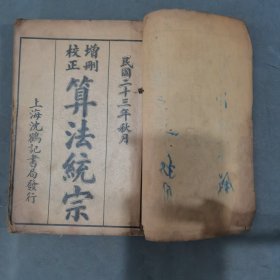 民國二十三年秋月
增刪
校正
算法統宗
上海沈鶴記書局發行